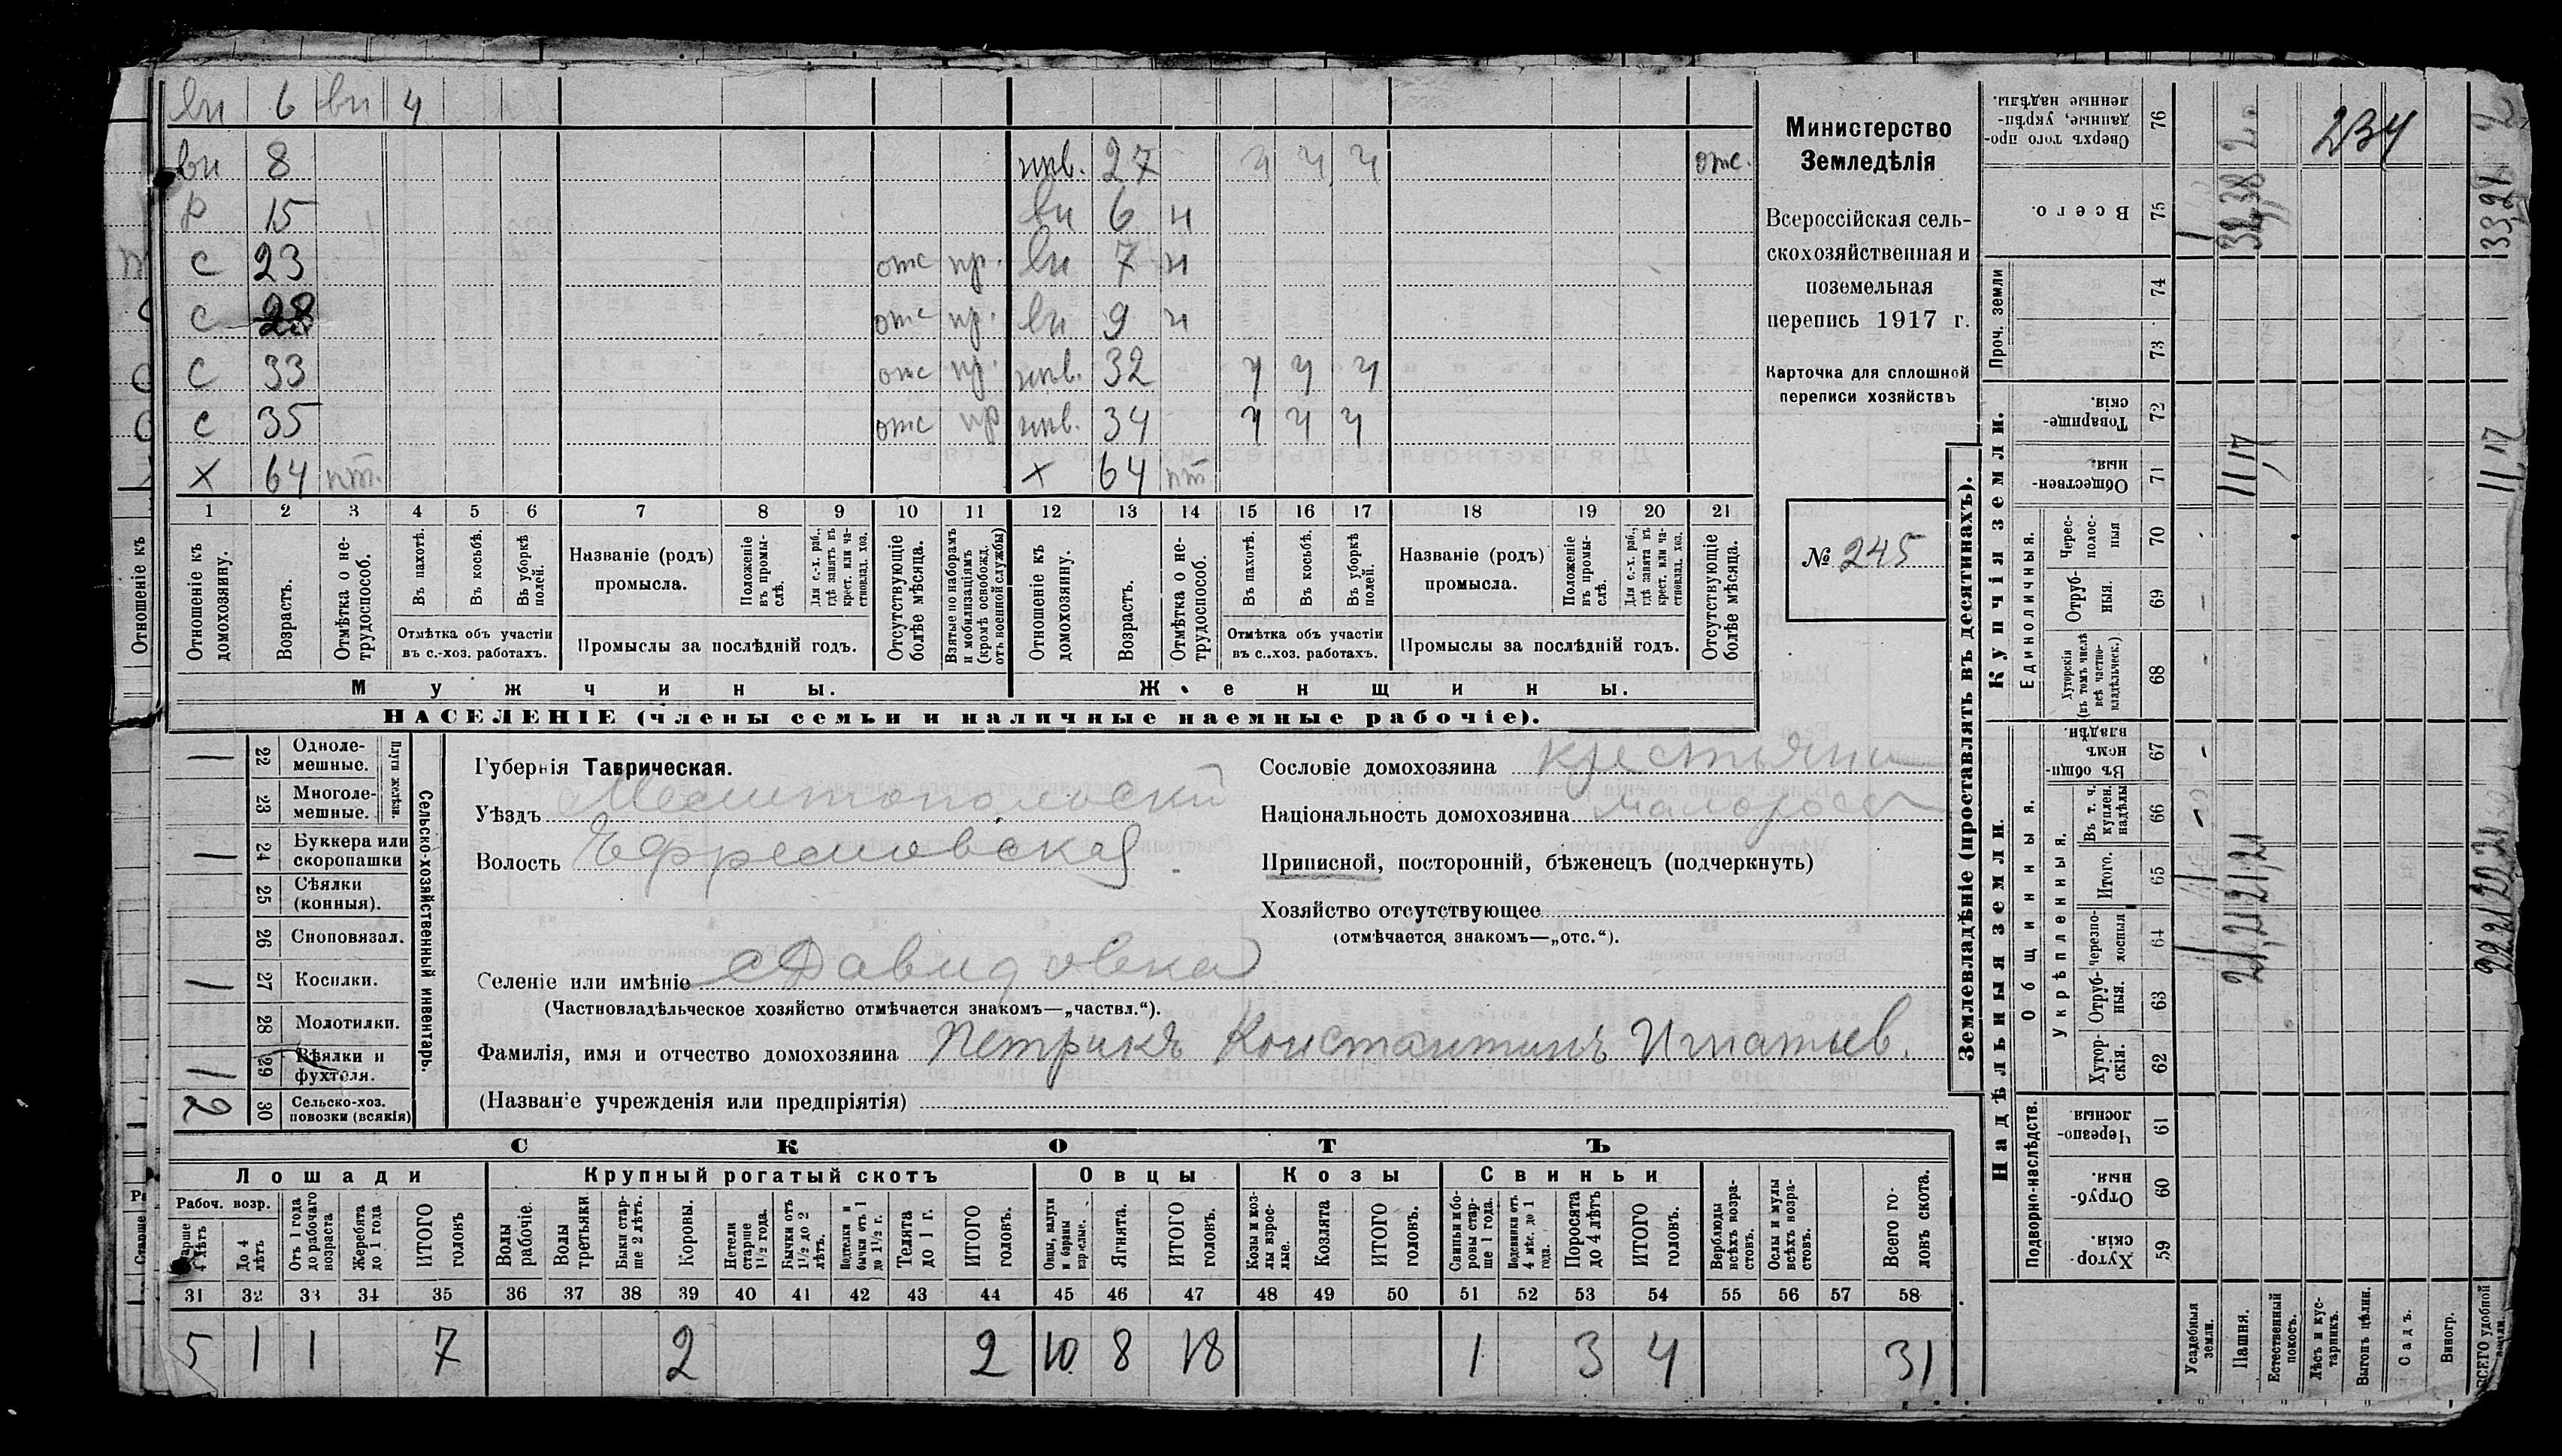 вн 6 вн 4
вн 8 нев. 27 ч ч ч отс.
р 15 вн 6 н
с 23 отс пр. вн 7 н
с 28 отс пр. вн 9 н
с 33 отс пр. нев. 32 ч ч ч
с 35 отс пр нев. 34 ч ч ч
х 64 пт. х 64 пт
1 2 3 4 5 6 7 8 9 10 11 12 13 14 15 16 17 18 19 20 21
Отношеніе къ домохозяину.
Возрастъ.
Отмѣтка о не-
трудоспособ.
Въ пахотѣ.
Въ косьбѣ.
Въ уборкѣ
полей.
Отмѣтка объ участіи
въ с.-хоз. работахъ.
Названіе (родъ)
промысла.
Положеніе
въ промы-
слѣ.
Для с.-х. раб.,
гдѣ занятъ въ
крест. или ча-
стновлад. хоз.
Промыслы за послѣдній годъ.
Отсутствующіе
болѣе мѣсяца.
Взятые по наборамъ
и мобилизаціямъ
(кромѣ освобожд.
отъ военной службы)
Отношеніе къ
домохозяину.
Возрастъ.
Отмѣтка о не-
трудоспособ.
Въ пахотѣ.
Въ косьбѣ.
Въ уборкѣ
полей.
Отмѣтка объ участіи
въ с..хоз. работахъ.
Названіе (родъ)
промысла.
Положеніе
въ промы-
слѣ.
Для с.-х. раб.,
гдѣ занята въ
крест. или ча-
стновлад. хоз.
Промыслы за послѣдній годъ.
Отсутствующіе
болѣе мѣсяца.
Мужчины.
Женщины.
НАСЕЛЕНІЕ (члены семьи и наличные наемные рабочіе).
Министерство
Земледѣлія
Всероссійская сель-
скохозяйственная и
поземельная
перепись 1917 г.
Карточка для сплошной
переписи хозяйствъ
№ 245
Отношеніе къ
1 22 Одноле-
мешные.
23 Многоле-
мешные.
Плуги желѣзн.
1 24 Буккера или
скоропашки
25 Сѣялки
(конныя).
26 Сноповязал.
1 27 Косилки.
28 Молотилки.
1 29 Вѣялки и
фухтеля.
2 30 Сельско-хоз.
повозки (всякія)
Сельско-хозяйственный инвентарь.
Губернія Таврическая.
Уѣздъ Мелитопольскій
Волость Ефремовская
Селеніе или имѣніе с Давидовка
(Частновладѣльческое хозяйство отмѣчается знакомъ—„частвл.“).
Фамилія, имя и отчество домохозяина Петрикъ Константинъ Игнатьев.
(Названіе учрежденія или предпріятія)
Сословіе домохозяина крестьянин
Національность домохозяина малоросс
Приписной, посторонній, бѣженецъ (подчеркнуть)
Хозяйство отсутствующее
(отмѣчается знакомъ—„отс.“).
СКОТЪ
Лошади
Крупный рогатый скотъ
Овцы
Козы
Свиньи
Рабоч. возр.
Старше
4 лѣтъ
До 4
лѣтъ
Отъ 1 года
до рабочаго
возраста
Жеребята
до 1 года
ИТОГО
головъ
Волы
рабочіе.
Волы
третьяки.
Быки стар-
ше 2 лѣтъ.
Коровы.
Нетели
старше
1½ года.
Бычки отъ
1½ до 2
лѣтъ.
Подтелки и
бычки отъ 1
до 1½ г.
Телята
до 1 г.
ИТОГО
головъ.
Овцы, валухи
и бараны
взрослые.
Ягнята.
ИТОГО
головъ.
Козы и коз-
лы взрос-
лые.
Козлята
ИТОГО
головъ.
Свиньи и бо-
ровы стар-
ше 1 года.
Подсвинки отъ
4 мѣс. до 1
года.
Поросята
до 4 лѣтъ
ИТОГО
головъ.
Верблюды
всѣхъ возра-
стовъ.
Ослы и мулы
всѣхъ возра-
стовъ.
Всего го-
ловъ скота.
31 32 33 34 35 36 37 38 39 40 41 42 43 44 45 46 47 48 49 50 51 52 53 54 55 56 57 58
5 1 1 7 2 2 10 8 18 1 3 4 31
Землевладѣніе (проставлять въ десятинахъ).
Надѣльныя земли.
Купчія земли.
Проч. земли
Подворно-наслѣдств.
Общинныя.
Укрѣпленныя.
Единоличныя.
Сверхъ того про-
данные, укрѣп-
ленные надѣлы.
76
Всего.
75
74
73
Товарище-
скія.
72
Обществен-
ныя.
71
Черес-
полос-
ныя
70
Отруб-
ныя.
69
Хуторскія
(въ томъ числѣ
всѣ частно-
владѣльческ.)
68
Въ общи-
номъ
владѣн.
67
Въ т. ч.
куплен.
надѣлы
66
Итого.
65
Черезпо-
лосныя
64
Отруб-
ныя.
63
Хутор-
скія.
62
Черезпо-
лосныя
61
Отруб-
ныя.
60
Хутор-
скія.
59
Усадебныя
земли.
Пашня.
Естественный
покосъ.
Лѣсъ и кус-
тарникъ.
Выгонъ цѣлин.
Садъ.
Виногр.
ВСЕГО удобной
земли.
234
11,17
11,17